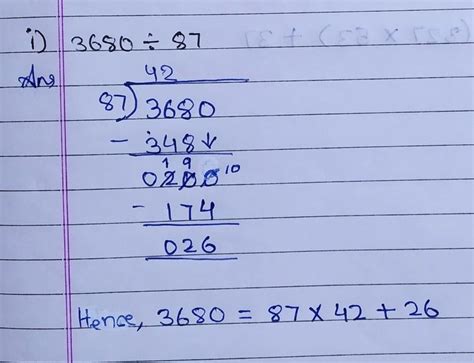 i) 3680 ÷ 87
Ans
42
87) 3680
- 348↓
1 9
0200 10
- 174
026
Hence, 3680 = 87 × 42 + 26